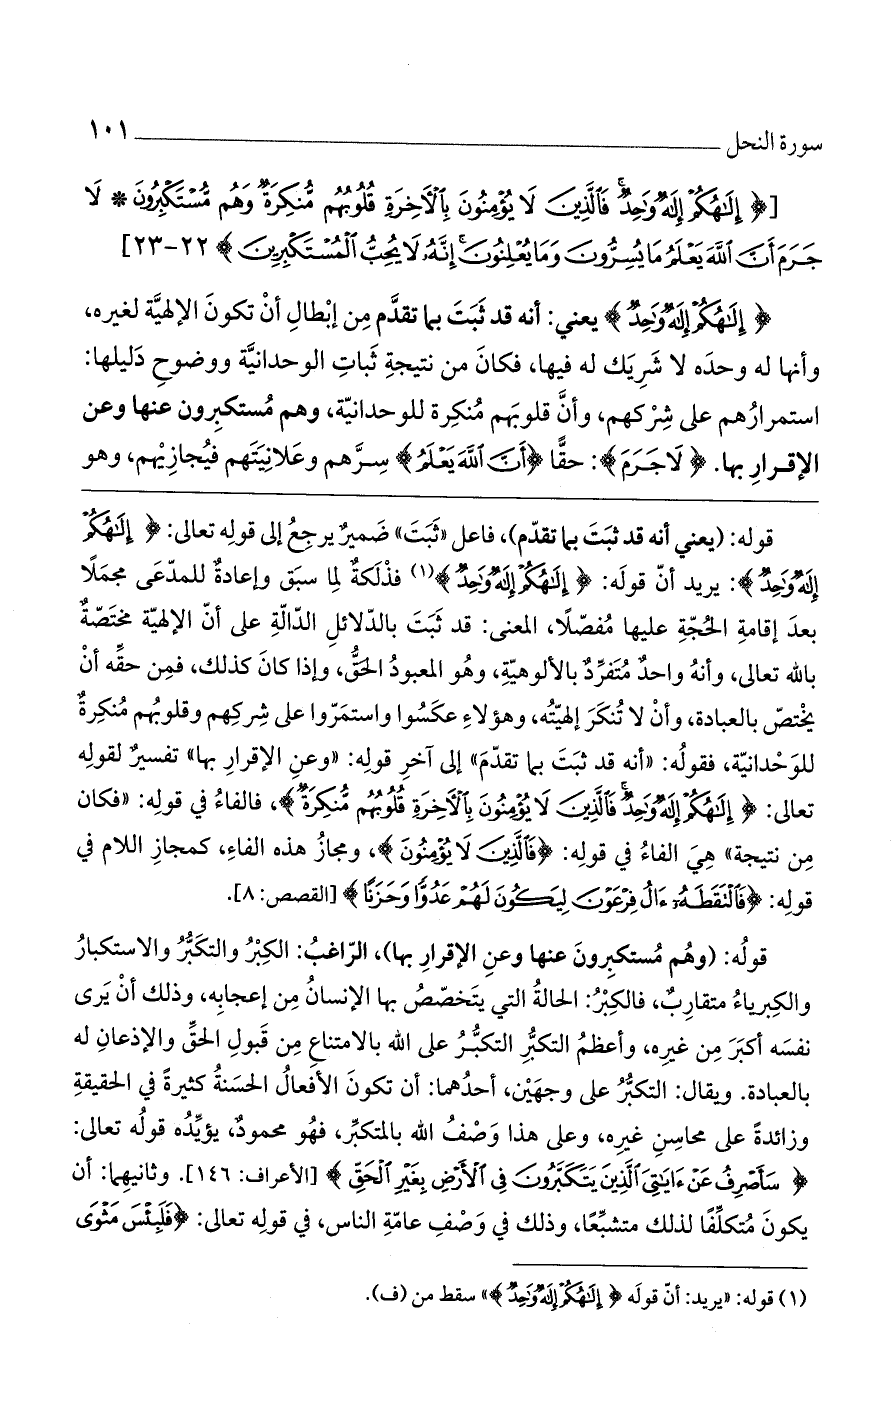 سورة النحل ١٠١
[﴿ إِلَٰهُكُمْ إِلَٰهٌ وَٰحِدٌ ۚ فَٱلَّذِينَ لَا يُؤْمِنُونَ بِٱلْأَخِرَةِ قُلُوبُهُم مُّنكِرَةٌ وَهُم مُّسْتَكْبِرُونَ * لَا
جَرَمَ أَنَّ ٱللَّهَ يَعْلَمُ مَا يُسِرُّونَ وَمَا يُعْلِنُونَ ۚ إِنَّهُۥ لَا يُحِبُّ ٱلْمُسْتَكْبِرِينَ ﴾ ٢٢-٢٣]
﴿ إِلَٰهُكُمْ إِلَٰهٌ وَٰحِدٌ ﴾ يعني: أنه قد ثَبَتَ بما تقدَّم مِن إبْطالِ أنْ تكونَ الإلهيَّة لغيره،
وأنها له وحدَه لا شَرِيَك له فيها، فكانَ من نتيجةِ ثَباتِ الوحدانيَّة ووضوحِ دَليلها:
استمرارُهم على شِرْكهم، وأنَّ قلوبَهم مُنكِرة للوحدانيّة، وهم مُستكبِرون عنها وعن
الإقرارِ بها. ﴿ لَا جَرَمَ ﴾: حقًّا ﴿أَنَّ ٱللَّهَ يَعْلَمُ ﴾ سِرَّهم وعَلانِيَتَهم فيُجازِيْهم، وهو
قوله: (يعني أنه قد ثبَتَ بما تقدّم)، فاعل «ثَبَتَ» ضَميرٌ يرجِعُ إلى قولِه تعالى: ﴿ إِلَٰهُكُمْ
إِلَٰهٌ وَٰحِدٌ ﴾: يريد أنّ قولَه: ﴿ إِلَٰهُكُمْ إِلَٰهٌ وَٰحِدٌ ﴾(١) فذْلَكةٌ لِما سبَق وإعادةٌ للمدّعَى مجمَلًا
بعدَ إقامةِ الحُجّةِ عليها مُفصّلًا، المعنى: قد ثَبَتَ بالدّلائلِ الدّالّةِ على أنّ الإلهيّة مختَصّةٌ
بالله تعالى، وأنهُ واحدٌ مُتَفرِّدٌ بالألوهيّةِ، وهُو المعبودُ الحَقُّ، وإذا كانَ كذلك، فمِن حقِّه أنْ
يخْتصّ بالعبادة، وأنْ لا تُنكَرَ إلهيّتُه، وهؤلاءِ عكَسُوا واستمَرّوا على شِركِهم وقلوبُهم مُنكِرةٌ
للوَحْدانيّة، فقولُه: «أنه قد ثبَتَ بما تقدّمَ» إلى آخرِ قولِه: «وعنِ الإقرارِ بها» تفسيرٌ لقولِه
تعالى: ﴿ إِلَٰهُكُمْ إِلَٰهٌ وَٰحِدٌ ۚ فَٱلَّذِينَ لَا يُؤْمِنُونَ بِٱلْأَخِرَةِ قُلُوبُهُم مُّنكِرَةٌ ﴾، فالفاءُ في قولِه: «فكان
مِن نتيجة» هِيَ الفاءُ في قولِه: ﴿فَٱلَّذِينَ لَا يُؤْمِنُونَ ﴾، ومجازُ هذه الفاءِ، كمجازِ اللام في
قولِه: ﴿فَٱلْتَقَطَهُۥٓ ءَالُ فِرْعَوْنَ لِيَكُونَ لَهُمْ عَدُوًّا وَحَزَنًا ﴾ [القصص: ٨].
قولُه: (وهُم مُستكبِرونَ عنها وعنِ الإقرارِ بها)، الرّاغبُ: الكِبْرُ والتكبُّرُ والاستكبارُ
والكِبرياءُ متقارِبٌ، فالكِبْرُ: الحالةُ التي يتَخصّصُ بها الإنسانُ مِن إعجابِه، وذلك أنْ يَرى
نفسَه أكبَرَ مِن غيرِه، وأعظمُ التكبُّرِ التكبُّرُ على الله بالامتناعِ مِن قَبولِ الحقِّ والإذعانِ له
بالعبادة. ويقال: التكبُّرُ على وجهَيْن، أحدُهما: أن تكونَ الأفعالُ الحسَنةُ كثيرةً في الحقيقةِ
وزائدةً على محاسنِ غيرِه، وعلى هذا وَصْفُ الله بالمتكبِّر، فهُو محمودٌ، يؤيِّدُه قولُه تعالى:
﴿ سَأَصْرِفُ عَنْ ءَايَٰتِىَ ٱلَّذِينَ يَتَكَبَّرُونَ فِى ٱلْأَرْضِ بِغَيْرِ ٱلْحَقِّ ﴾ [الأعراف: ١٤٦]. وثانيهما: أن
يكونَ مُتكلِّفًا لذلك متشبِّعًا، وذلك في وَصْفِ عامّةِ الناس، في قولِه تعالى: ﴿فَلَبِئْسَ مَثْوَى
(١) قوله: «يريد: أنّ قولَه ﴿ إِلَٰهُكُمْ إِلَٰهٌ وَٰحِدٌ ﴾» سقط من (ف).